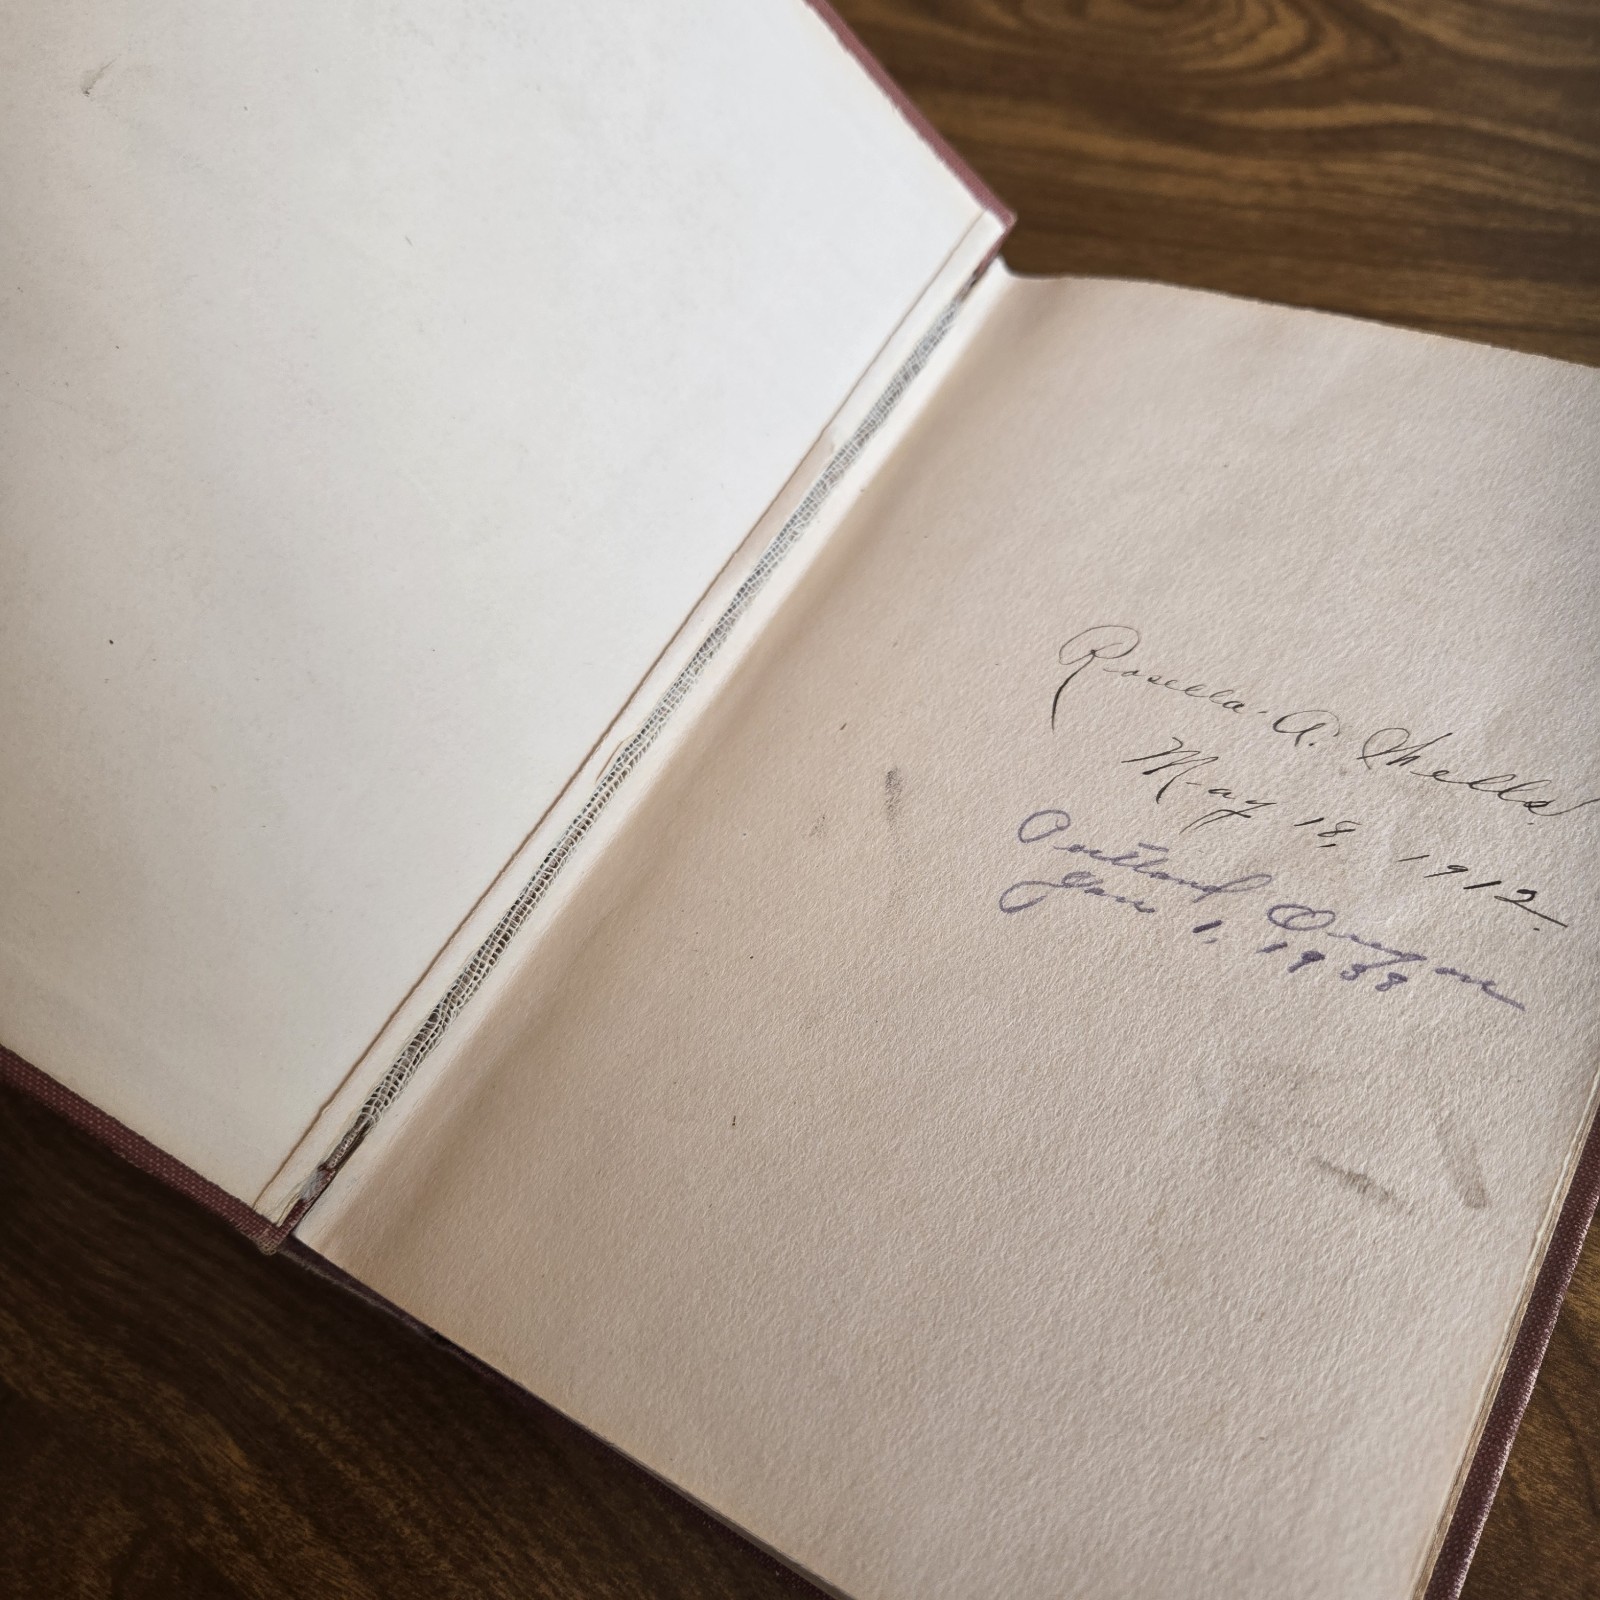 Rosella. A. Wells.
May 18, 1912.
Portland, Oregon
Jan 1, 1938